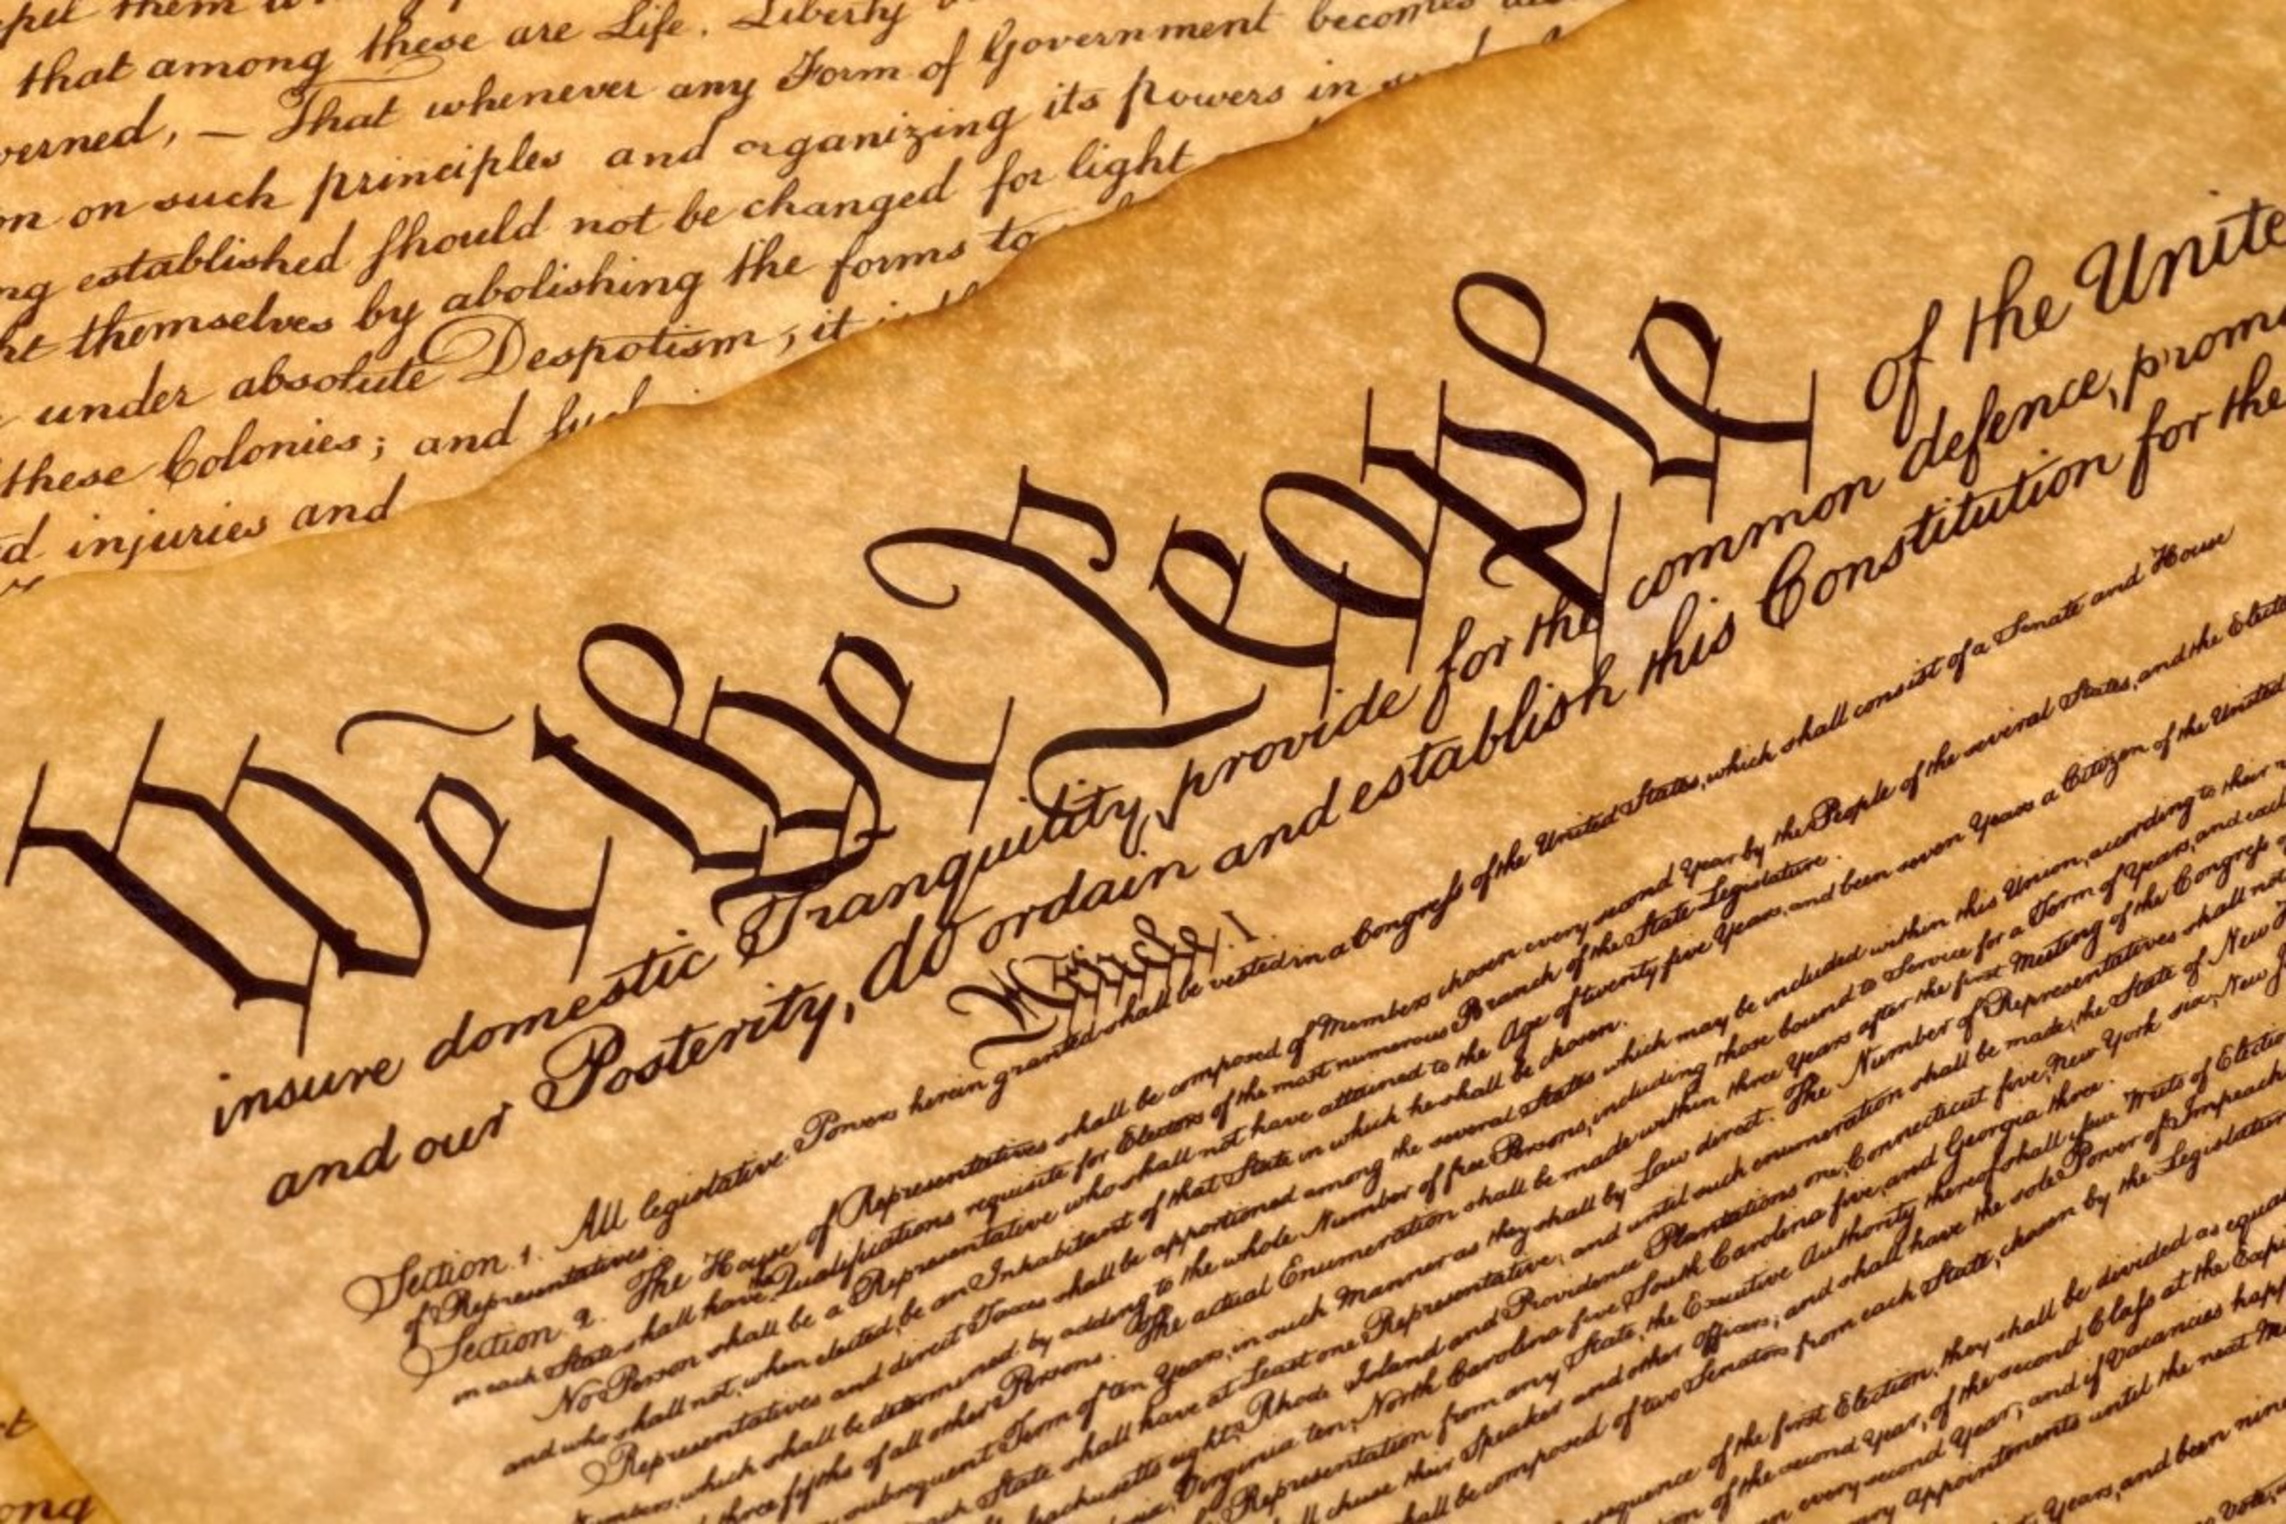 that among these are Life, Liberty
verned, — That whenever any Form of Government becomes
on on such principles and organizing its powers in
ng established should not be changed for light
themselves by abolishing the forms to
under absolute Despotism, it
these Colonies; and
d injuries and
We the People of the Unite
insure domestic Tranquility, provide for the common defence, promo
and our Posterity, do ordain and establish this Constitution for the
Article. I.
Section. 1. All legislative Powers herein granted shall be vested in a Congress of the United States, which shall consist of a Senate and House
of Representatives.
Section. 2. The House of Representatives shall be composed of Members chosen every second Year by the People of the several States, and the Elect
in each State shall have the Qualifications requisite for Electors of the most numerous Branch of the State Legislature.
No Person shall be a Representative who shall not have attained to the Age of twenty five Years, and been seven Years a Citizen of the United
and who shall not, when elected, be an Inhabitant of that State in which he shall be chosen.
Representatives and direct Taxes shall be apportioned among the several States which may be included within this Union, according to their
Numbers, which shall be determined by adding to the whole Number of free Persons, including those bound to Service for a Term of Years, and
three fifths of all other Persons. The actual Enumeration shall be made within three Years after the first Meeting of the Congress
subsequent Term of ten Years, in such Manner as they shall by Law direct. The Number of Representatives shall not
State shall have at Least one Representative; and until such enumeration shall be made, the State of New
eight, Rhode Island and Providence Plantations one, Connecticut five, New York six, New
Virginia ten, North Carolina five, South Carolina five, and Georgia three.
Representation from any State, the Executive Authority thereof shall issue Writs of Electio
chuse their Speaker and other Officers; and shall have the sole Power of Impeach
shall be composed of two Senators from each State, chosen by the Legislature
of the first Election, they shall be divided as equa
of the second Year, of the second Class at the Exp
every second Year; and if Vacancies happ
Appointments until the next
Years, and been nine
Vote,
ong